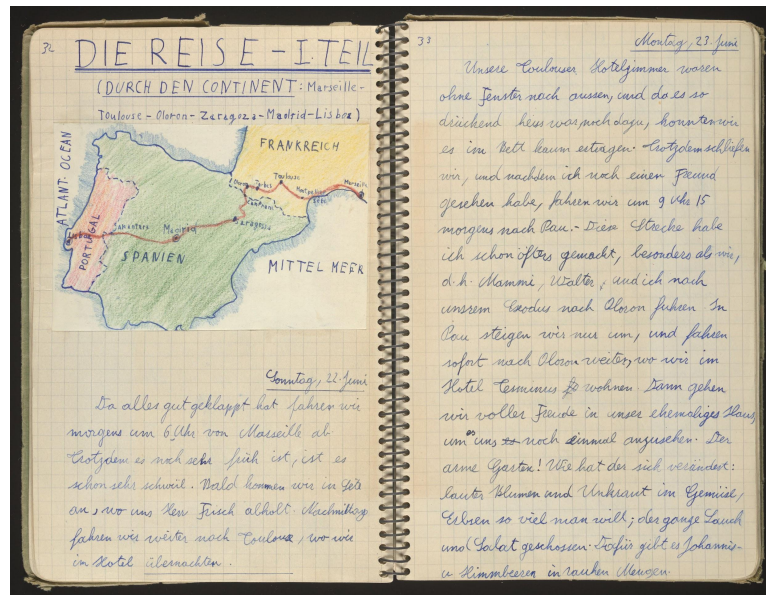 32
DIE REISE - I. TEIL
(DURCH DEN CONTINENT: Marseille-
Toulouse - Oloron - Zaragoza - Madrid - Lisboa)
ATLANT. OCEAN
FRANKREICH
Toulouse
Tarbes
Marseille
Montpellier
Sète
Canfranc
Zaragoza
Madrid
PORTUGAL
SPANIEN
MITTEL MEER
Sonntag, 22. Juni
Da alles gut geklappt hat fahren wir
morgens um 6 Uhr von Marseille ab
Trotzdem es noch sehr früh ist, ist es
schon sehr schwül. Bald kommen wir in Sète
an, wo uns Herr Frisch abholt. Nachmittags
fahren wir weiter nach Toulouse, wo wir
im Hotel übernachten.
33
Montag, 23. Juni
Unsere Toulouser Hotelzimmer waren
ohne Fenster nach aussen, und da es so
drückend heiss war, noch dazu, konnten wir
es im Bett kaum ertragen. Trotzdem schliefen
wir, und nachdem ich noch einen Freund
gesehen habe, fahren wir um 9 Uhr 15
morgens nach Pau. - Diese Strecke habe
ich schon öfters gemacht, besonders als wir,
d.h. Mammi, Walter, und ich nach
unsrem Exodus nach Oloron fuhren. In
Pau steigen wir nur um, und fahren
sofort nach Oloron weiter, wo wir im
Hotel Terminus wohnen. Dann gehen
wir voller Freude in unser ehemaliges Haus,
um es uns noch einmal anzusehen. Der
arme Garten! Wie hat der sich verändert:
lauter Blumen und Unkraut im Gemüse,
Erbsen so viel man will; der ganze Lauch
und Salat geschossen. Dafür gibt es Johannis-
u Himmbeeren in rauhen Mengen.